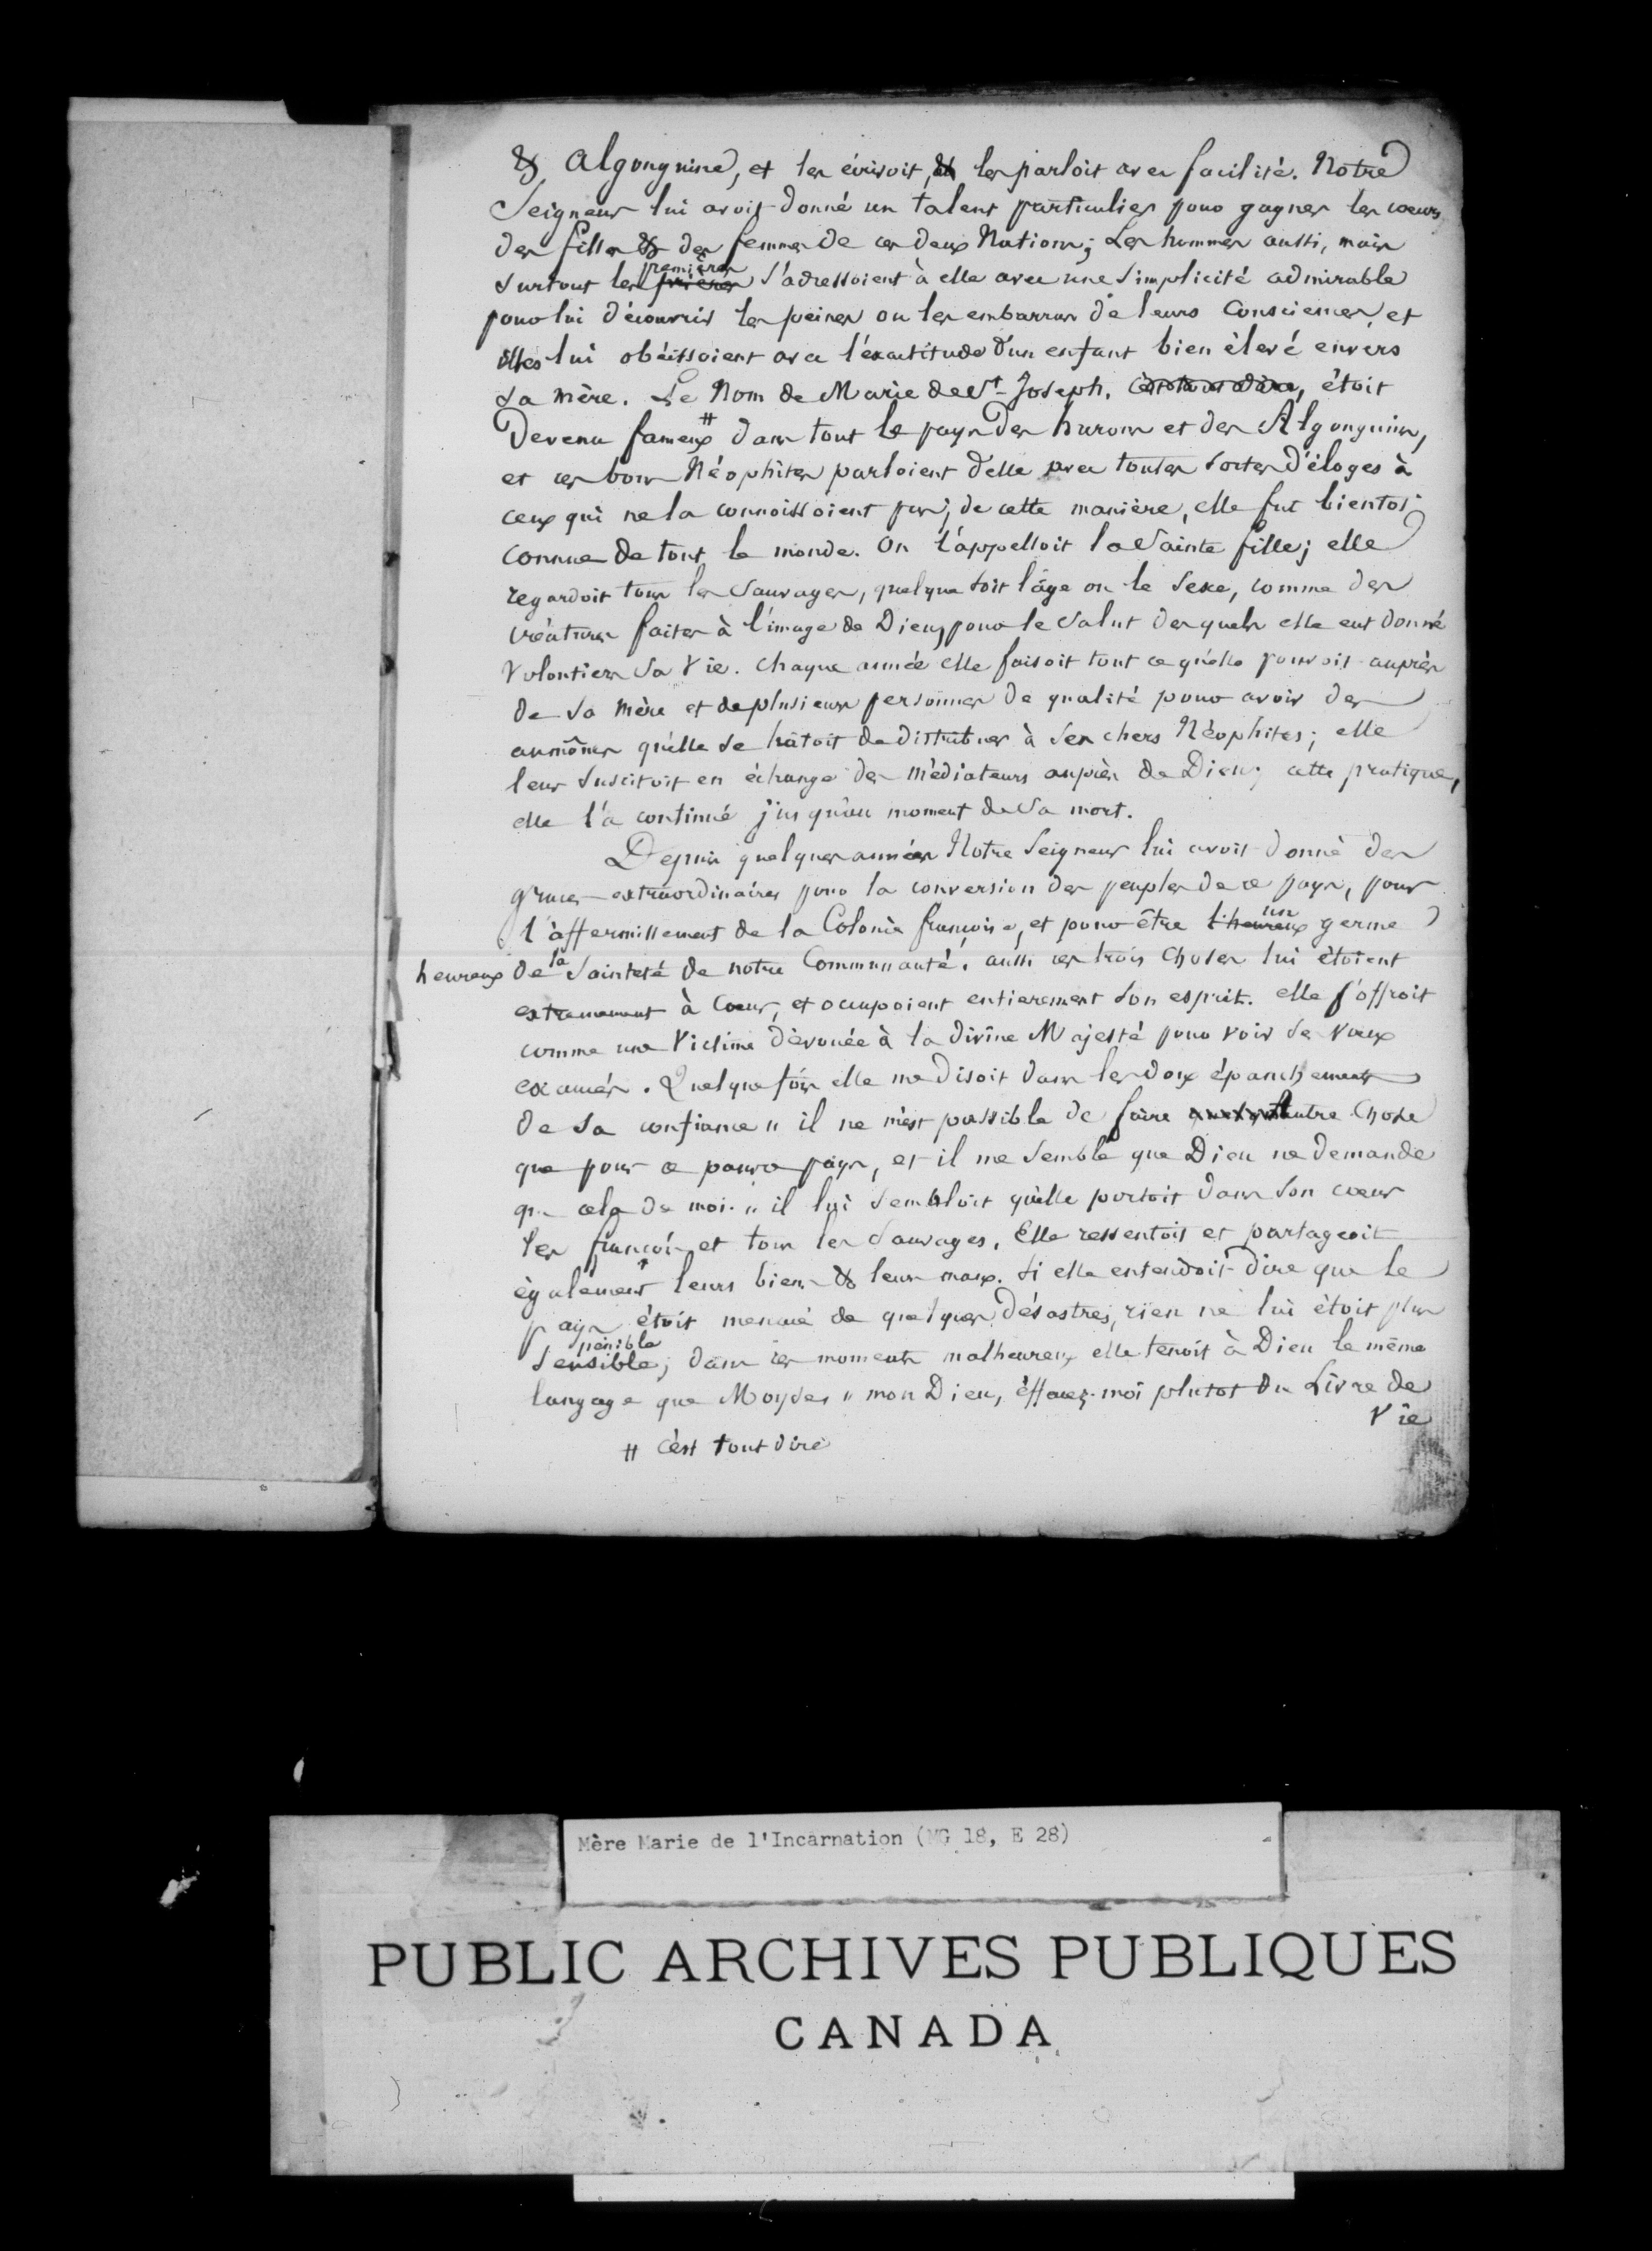 & Algonquine, et les écrivoit, & les parloit avec facilité. Notre
Seigneur lui avoit donné un talent particulier pour gagner les coeurs
des filles & des femmes de ces deux Nations; Les hommes aussi, mais
premières
surtout les prières s'adressoient à elle avec une simplicité admirable
pour lui découvrir les peines ou les embarras de leurs Consciences, et
elles lui obéissoient avec l'éxactitude d'un enfant bien élevé envers
sa mère. Le Nom de Marie de St-Joseph, c'est tout dire, étoit
Devenu fameux # dans tout le pays des hurons et des Algonquins,
et ces bons Néophites parloient d'elle avec toutes sortes d'éloges à
ceux qui ne la connoissoient pas; de cette manière, elle fut bientot
connue de tout le monde. On l'appelloit la Sainte fille; elle
regardoit tous les Sauvages, quelque soit l'âge ou le Sexe, comme des
créatures faites à l'image de Dieu, pour le Salut desquels elle eut donné
Volontiers Sa Vie. Chaque année elle faisoit tout ce qu'elle pouvoit auprès
de Sa Mère et de plusieurs personnes de qualité pour avoir des
aumônes qu'elle se hâtoit de distribuer à Ses chers Néophites; elle
leur Suscitoit en échange des Médiateurs auprès de Dieu; cette pratique,
elle l'a continué j'usqu'au moment de Sa mort.
Depuis quelques années Notre Seigneur lui avoit donné des
graces extraordinaires pour la conversion des peuples de ce pays, pour
l'affermissement de la Colonie françoise, et pour être l'heureux un germe
heureux de la Sainteté de notre Communauté. aussi ces trois Choses lui étoient
extremement à Coeur, et occupoient entierement Son esprit. elle s'offroit
comme une Victime dévouée à la divine Majesté pour voir Ses Voeux
exaucés. Quelque fois elle me disoit dans les doux épanchements
de Sa confiance " il ne m'est possible de faire autre Chose
que pour ce pauvre pays, et il me Semble que Dieu ne demande
que cela de moi. " il lui Sembloit qu'elle portoit dans Son coeur
les françois et tous les Sauvages. Elle ressentoit et partageoit
également leurs biens & leurs maux. Si elle entendoit dire que le
pays étoit menacé de quelques désastres, rien ne lui étoit plus
pénible
Sensible; dans ces moments malheureux elle tenoit à Dieu le même
langage que Moyses " mon Dieu, éffacez-moi plutot du Livre de
Vie
# c'est tout dire
Mère Marie de l'Incarnation (MG 18, E 28)
PUBLIC ARCHIVES PUBLIQUES
CANADA